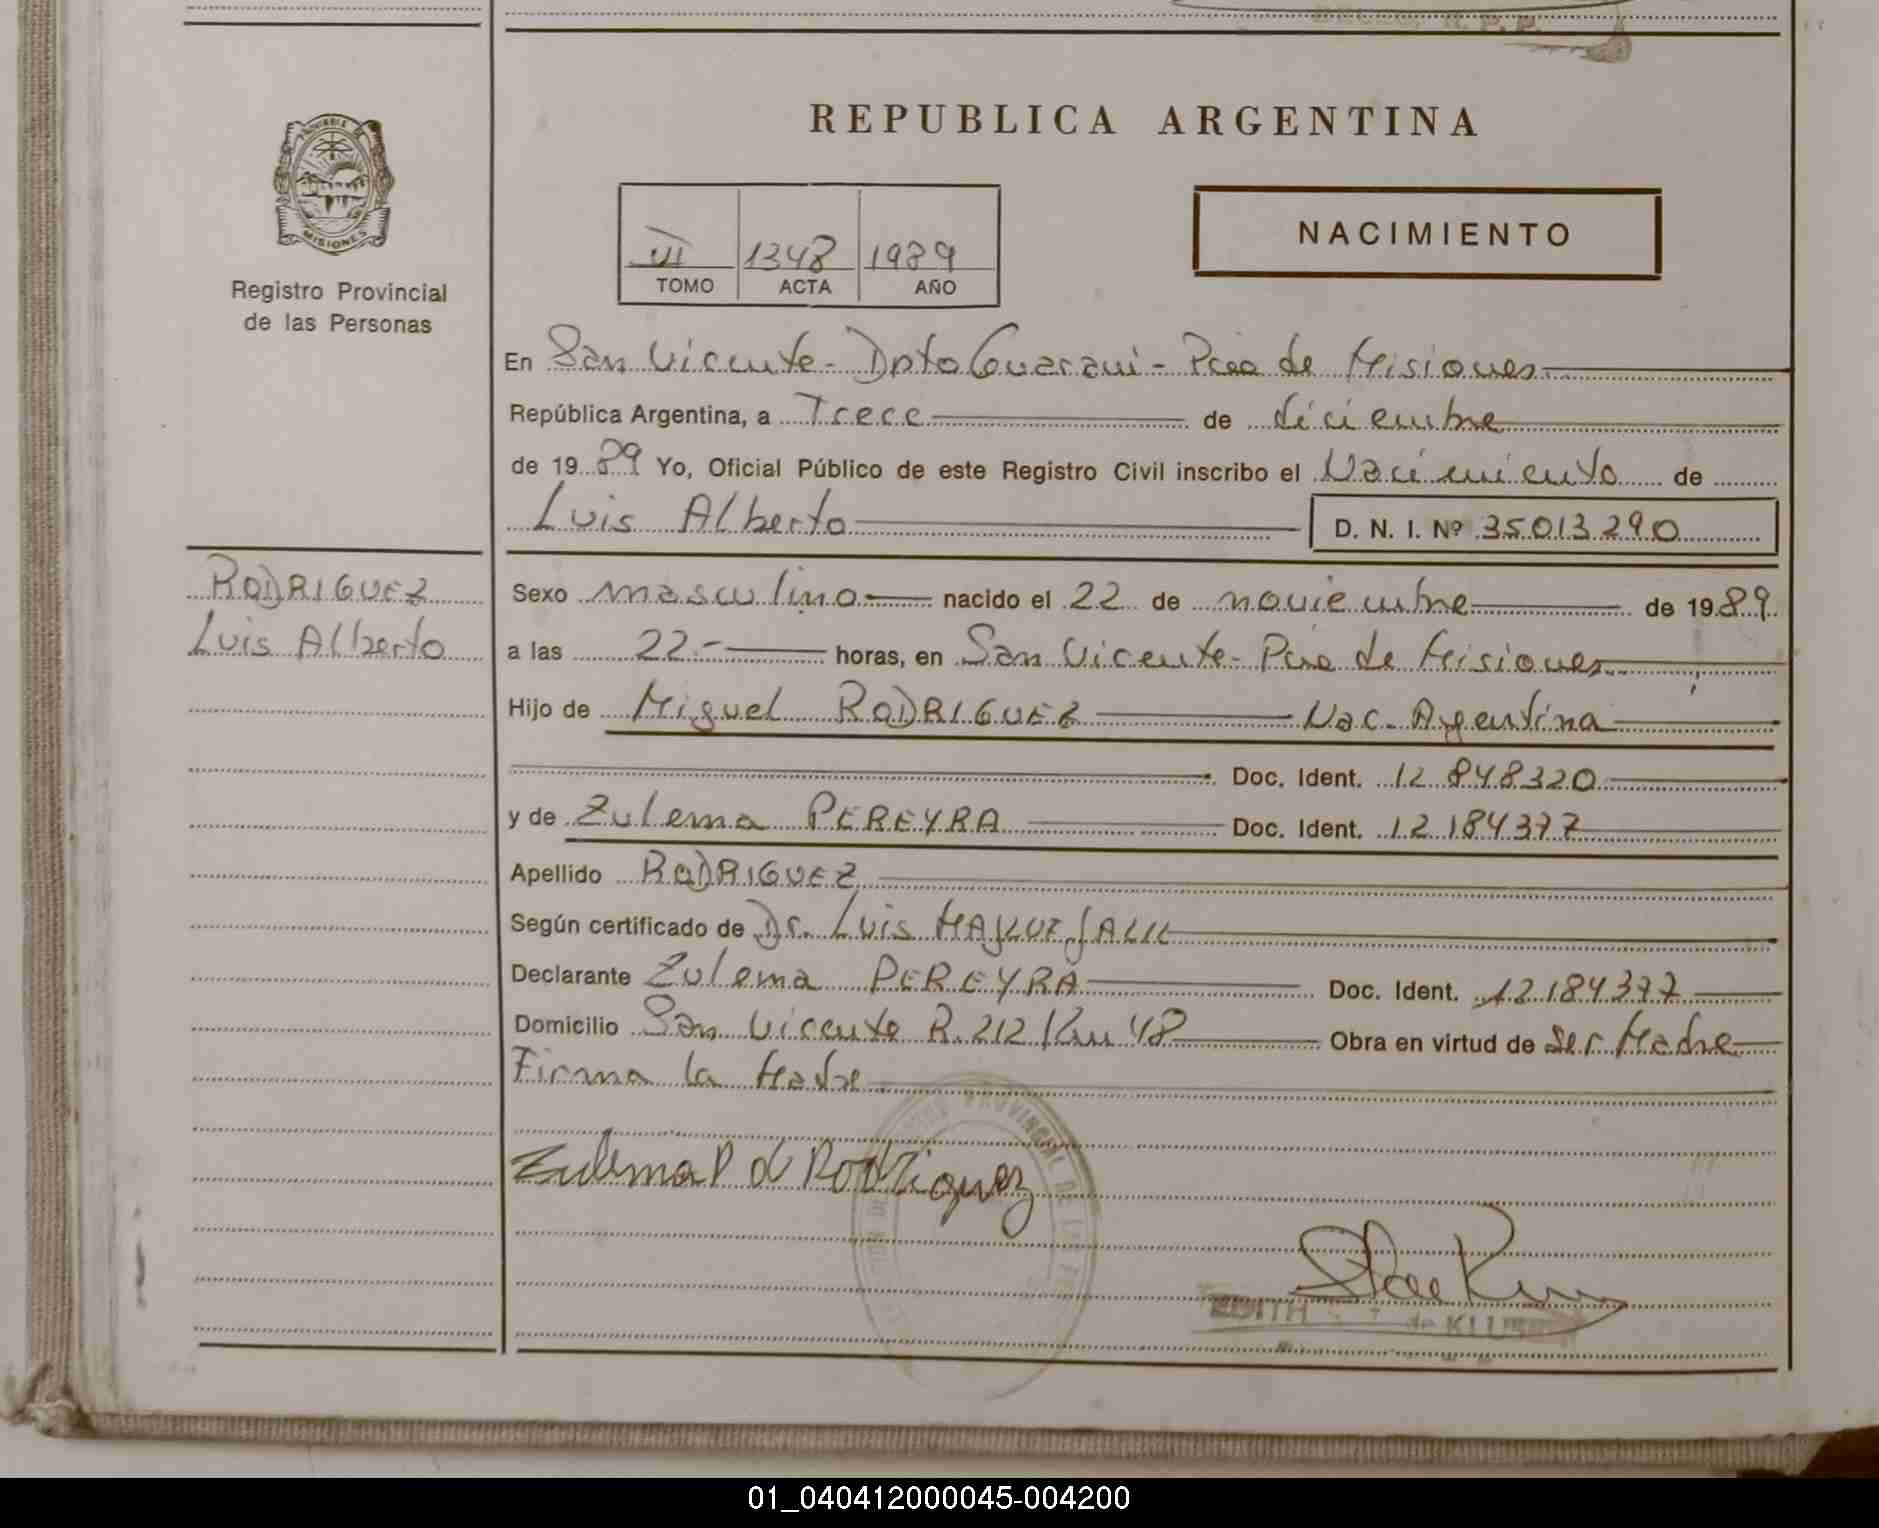 REPUBLICA ARGENTINA
PROVINCIA DE
MISIONES
Registro Provincial
de las Personas
VI 1348 1989
TOMO ACTA AÑO
NACIMIENTO
En San Vicente - Dpto Guarani - Pcia de Misiones
República Argentina, a Trece de diciembre
de 1989 Yo, Oficial Público de este Registro Civil inscribo el Nacimiento de
Luis Alberto D. N. I. Nº 35013290
RODRIGUEZ
Luis Alberto
Sexo masculino nacido el 22 de noviembre de 1989
a las 22.- horas, en San Vicente - Pcia de Misiones
Hijo de Miguel RODRIGUEZ Nac. Argentina
Doc. Ident. 12 848320
y de Zulema PEREYRA Doc. Ident. 12 184377
Apellido RODRIGUEZ
Según certificado de Dr. Luis
Declarante Zulema PEREYRA Doc. Ident. 12184377
Domicilio San Vicente R. 212 Km 48 Obra en virtud de ser Madre
Firma la Madre
Zulema P d Rodriguez
EDITH de
01_040412000045-004200